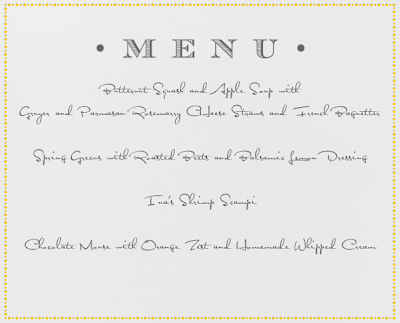 • MENU •
Butternut Squash and Apple Soup with
Gruyer and Parmasan Rosemary Cheese Straws and French Baguettes
Spring Greens with Roasted Beets and Balsamic Lemon Dressing
Ina's Shrimp Scampi
Chocolate Mouse with Orange Zest and Homemade Whipped Cream